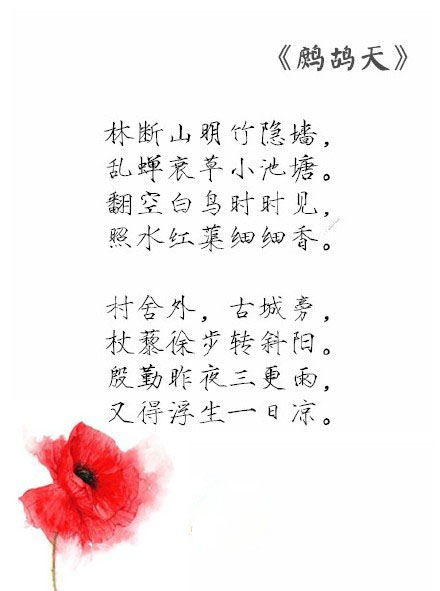 《鹧鸪天》
林断山明竹隐墙，
乱蝉衰草小池塘。
翻空白鸟时时见，
照水红蕖细细香。
村舍外，古城旁，
杖藜徐步转斜阳。
殷勤昨夜三更雨，
又得浮生一日凉。